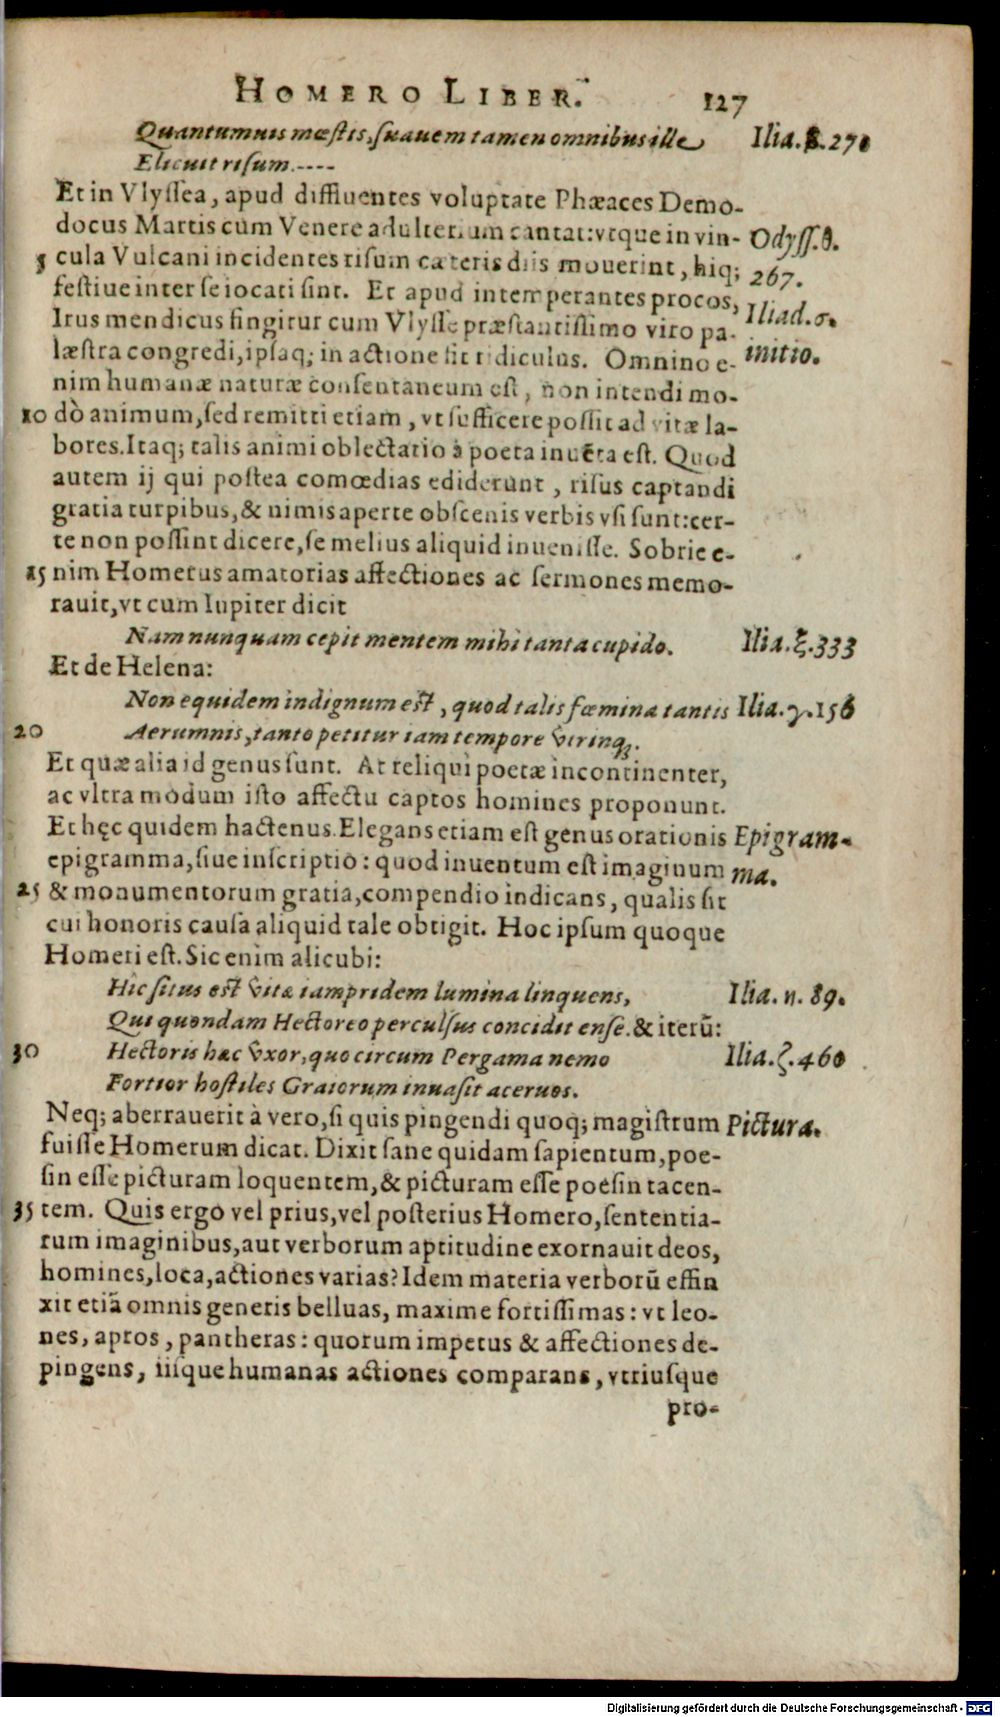 HOMERO LIBER. 127
Quantumuis mœstis, suauem tamen omnibus ille Ilia. β. 270
Elicuit risum.----
Et in Vlyſſea, apud diffluentes voluptate Phæaces Demo-
docus Martis cum Venere adulterium cantat: vtque in vin- Odyſſ. θ.
5 cula Vulcani incidentes riſum cæteris diis mouerint, hiq; 267.
feſtiue inter ſe iocati ſint. Et apud intemperantes procos, Iliad. σ.
Irus mendicus fingitur cum Vlyſſe præſtantiſſimo viro pa- initio.
læſtra congredi, ipſaq; in actione ſit ridiculus. Omnino e-
nim humanæ naturæ conſentaneum eſt, non intendi mo-
10 dò animum, ſed remitti etiam, vt ſufficere poſſit ad vitæ la-
bores. Itaq; talis animi oblectatio à poeta inuēta eſt. Quod
autem ij qui poſtea comœdias ediderunt, riſus captandi
gratia turpibus, & nimis aperte obſcenis verbis vſi ſunt: cer-
te non poſſint dicere, ſe melius aliquid inueniſſe. Sobrie e-
15 nim Homerus amatorias affectiones ac ſermones memo-
rauit, vt cum Iupiter dicit
Nam nunquam cepit mentem mihi tanta cupido. Ilia. ξ. 333
Et de Helena:
Non equidem indignum eſt, quod talis fœmina tantis Ilia. γ. 156
20 Aerumnis, tanto petitur iam tempore vtrinq;.
Et quæ alia id genus ſunt. At reliqui poetæ incontinenter,
ac vltra modum iſto affectu captos homines proponunt.
Et hęc quidem hactenus. Elegans etiam eſt genus orationis Epigram-
epigramma, ſiue inſcriptio: quod inuentum eſt imaginum ma.
25 & monumentorum gratia, compendio indicans, qualis ſit
cui honoris cauſa aliquid tale obtigit. Hoc ipſum quoque
Homeri eſt. Sic enim alicubi:
Hic ſitus eſt vitæ iampridem lumina linquens, Ilia. η. 89.
Qui quondam Hectoreo perculſus concidit enſe. & iterū:
30 Hectoris hæc vxor, quo circum Pergama nemo Ilia. ζ. 460
Fortior hoſtiles Graiorum inuaſit aceruos.
Neq; aberrauerit à vero, ſi quis pingendi quoq; magiſtrum Pictura.
fuiſſe Homerum dicat. Dixit ſane quidam ſapientum, poe-
ſin eſſe picturam loquentem, & picturam eſſe poeſin tacen-
35 tem. Quis ergo vel prius, vel poſterius Homero, ſententia-
rum imaginibus, aut verborum aptitudine exornauit deos,
homines, loca, actiones varias? Idem materia verborū effin
xit etiā omnis generis belluas, maxime fortiſſimas: vt leo-
nes, apros, pantheras: quorum impetus & affectiones de-
pingens, iiſque humanas actiones comparans, vtriuſque
pro-
Digitalisierung gefördert durch die Deutsche Forschungsgemeinschaft - DFG